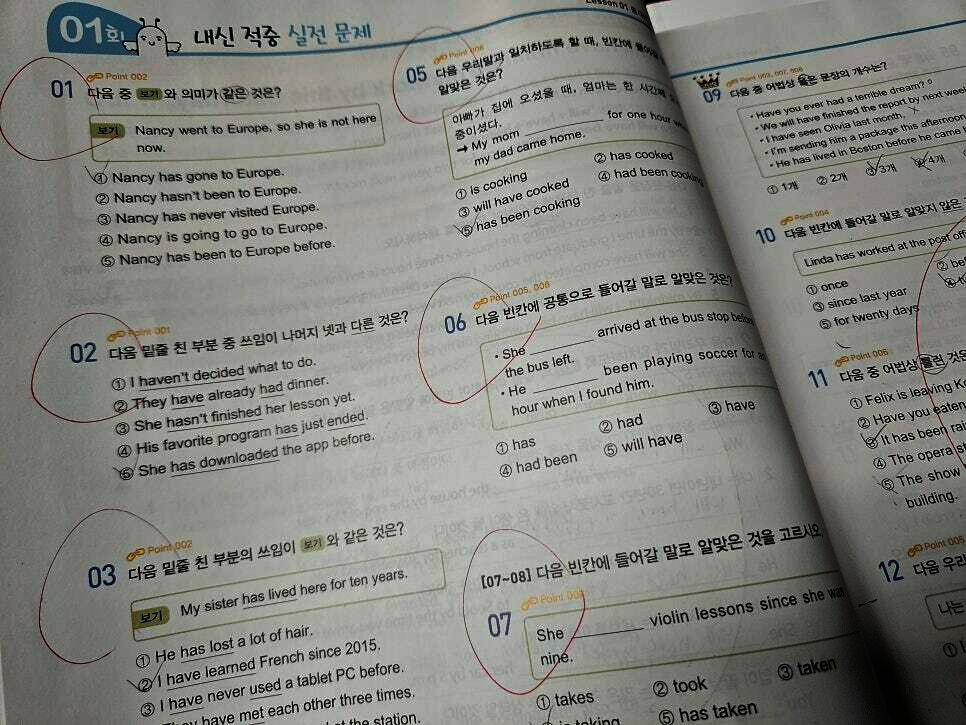 01회 내신 적중 실전 문제
Lesson 01
Point 002
01 다음 중 보기 와 의미가 같은 것은?
보기 Nancy went to Europe, so she is not here
now.
① Nancy has gone to Europe.
② Nancy hasn't been to Europe.
③ Nancy has never visited Europe.
④ Nancy is going to go to Europe.
⑤ Nancy has been to Europe before.
Point 001
02 다음 밑줄 친 부분 중 쓰임이 나머지 넷과 다른 것은?
① I haven't decided what to do.
② They have already had dinner.
③ She hasn't finished her lesson yet.
④ His favorite program has just ended.
⑤ She has downloaded the app before.
Point 002
03 다음 밑줄 친 부분의 쓰임이 보기 와 같은 것은?
보기 My sister has lived here for ten years.
① He has lost a lot of hair.
② I have learned French since 2015.
③ I have never used a tablet PC before.
They have met each other three times.
at the station.
Point 006
05 다음 우리말과 일치하도록 할 때, 빈칸에 들어갈
알맞은 것은?
아빠가 집에 오셨을 때, 엄마는 한 시간째
중이셨다.
→ My mom ______ for one hour
my dad came home.
① is cooking
② has cooked
③ will have cooked
④ had been cooking
⑤ has been cooking
Point 005, 006
06 다음 빈칸에 공통으로 들어갈 말로 알맞은 것은?
• She ______ arrived at the bus stop before
the bus left.
• He ______ been playing soccer for
hour when I found him.
① has
② had
③ have
④ had been
⑤ will have
[07~08] 다음 빈칸에 들어갈 말로 알맞은 것을 고르시오.
Point
07 She ______ violin lessons since she was
nine.
① takes
② took
③ taken
is taking
⑤ has taken
Point 003, 007, 008
09 다음 중 어법상 옳은 문장의 개수는?
• Have you ever had a terrible dream?
• We will have finished the report by next week
• I have seen Olivia last month.
• I'm sending him a package this afternoon
• He has lived in Boston before he came
① 1개
② 2개
③ 3개
④ 4개
Point 004
10 다음 빈칸에 들어갈 말로 알맞지 않은
Linda has worked at the post
① once
②
③ since last year
④
⑤ for twenty days
Point 006
11 다음 중 어법상 틀린 것은
① Felix is leaving
② Have you eaten
③ It has been
④ The opera
⑤ The show
building.
Point 005
12 다음
나는